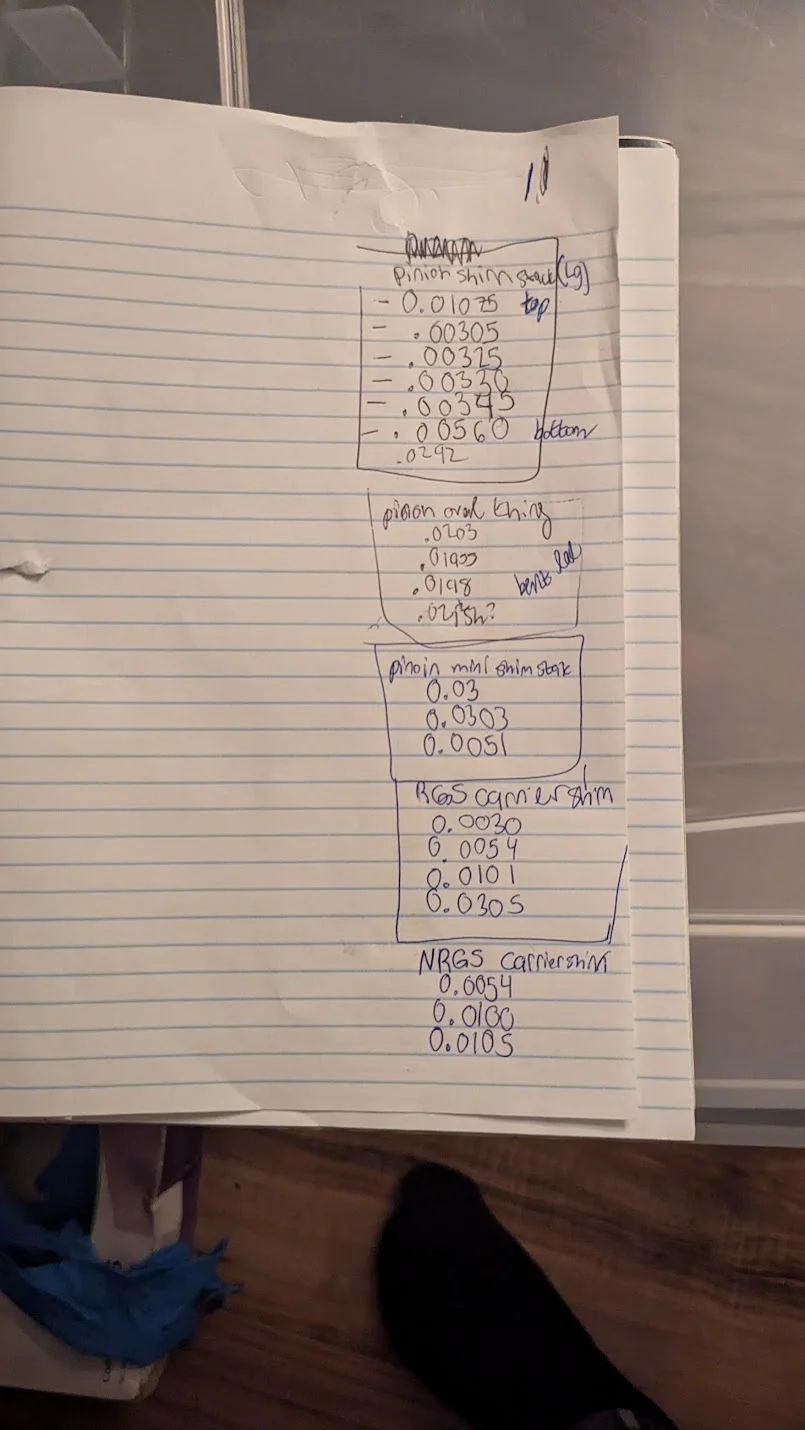 pinion shim stack (Lg)
- 0.01075 top
- .00305
- .00325
- .00330
- .00345
- .00560 bottom
.0292
pinion oval thing
.0203
.01955
.0198
.02ish?
pinoin mini shim stak
0.03
0.0303
0.0051
RGS carrier shim
0.0030
0.0054
0.0101
0.0305
NRGS carrier shim
0.0054
0.0100
0.0105